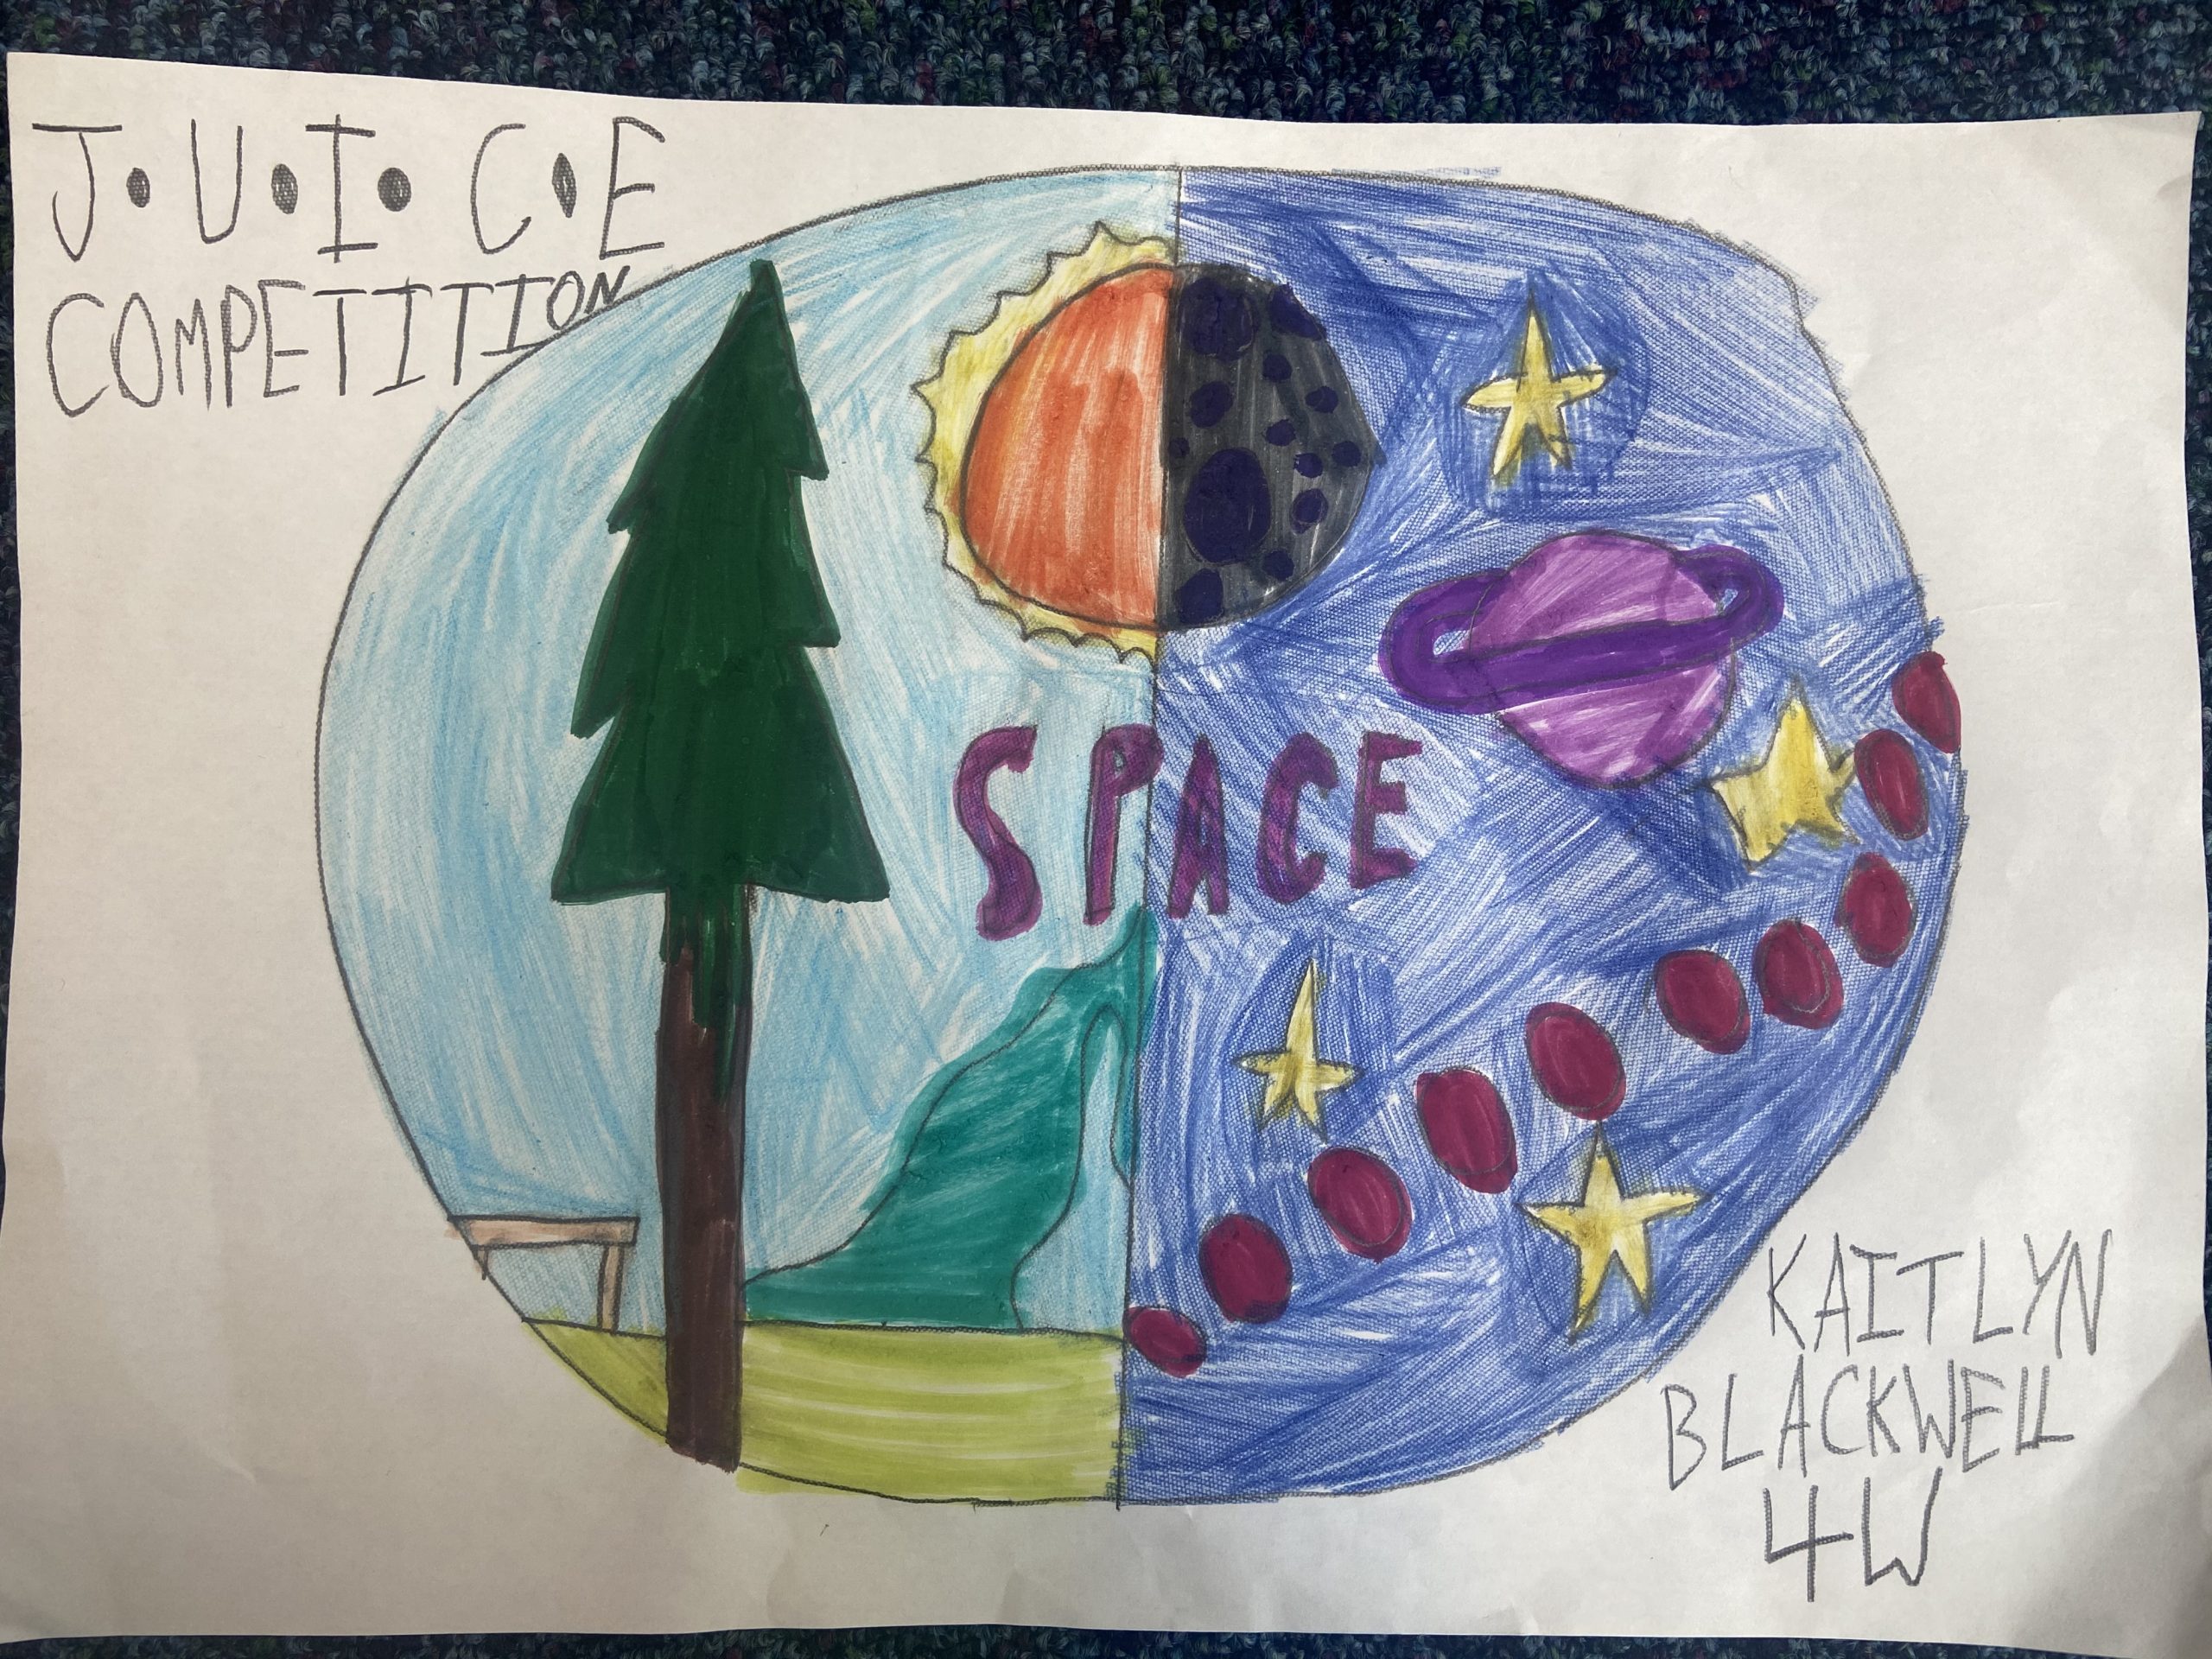 J.U.I.C.E
COMPETITION
SPACE
KAITLYN
BLACKWELL
4W